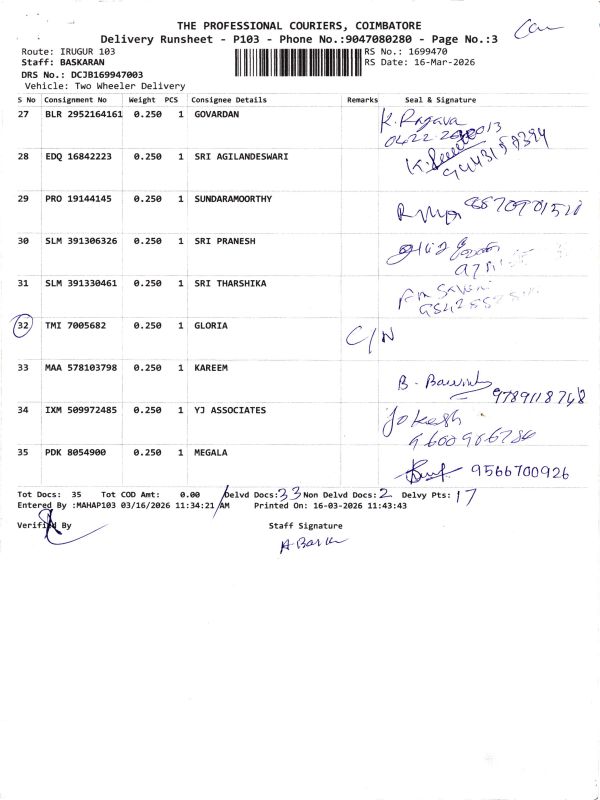 THE PROFESSIONAL COURIERS, COIMBATORE
Delivery Runsheet - P103 - Phone No.:9047080280 - Page No.:3
Route: IRUGUR 103 RS No.: 1699470
Staff: BASKARAN RS Date: 16-Mar-2026
DRS No.: DCJB169947003
Vehicle: Two Wheeler Delivery
S No Consignment No Weight PCS Consignee Details Remarks Seal & Signature
27 BLR 2952164161 0.250 1 GOVARDAN K. Ragava
28 EDQ 16842223 0.250 1 SRI AGILANDESWARI
29 PRO 19144145 0.250 1 SUNDARAMOORTHY
30 SLM 391306326 0.250 1 SRI PRANESH
31 SLM 391330461 0.250 1 SRI THARSHIKA
32 TMI 7005682 0.250 1 GLORIA C/N
33 MAA 578103798 0.250 1 KAREEM
9789118748
34 IXM 509972485 0.250 1 YJ ASSOCIATES Jokesh
35 PDK 8054900 0.250 1 MEGALA
9566700926
Tot Docs: 35 Tot COD Amt: 0.00 Delvd Docs: 33 Non Delvd Docs: 2 Delvy Pts: 17
Entered By :MAHAP103 03/16/2026 11:34:21 AM Printed On: 16-03-2026 11:43:43
Verified By Staff Signature